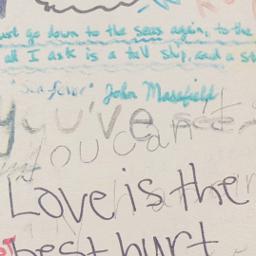 ust go down to the seas again, to the
all I ask is a tall ship, and a st
"Sea fever" John Masefield
you've
you can't
Love is the
best hurt